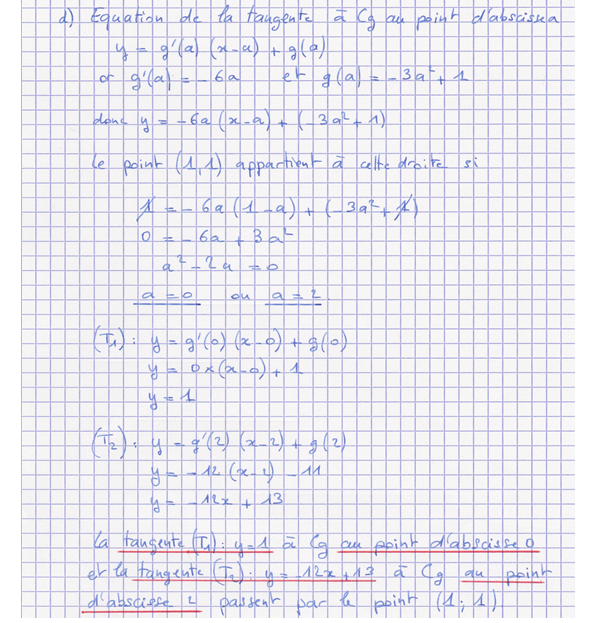 d) Equation de la tangente à Cg au point d'abscisse a
y = g'(a) (x-a) + g(a)
or g'(a) = -6a et g(a) = -3a² + 1
donc y = -6a (x-a) + (-3a² + 1)
Le point (1,1) appartient à cette droite si
1 = -6a (1-a) + (-3a² + 1)
0 = -6a + 3a²
a² - 2a = 0
a = 0 ou a = 2
(T₁) : y = g'(0) (x-0) + g(0)
y = 0×(x-0) + 1
y = 1
(T₂) : y = g'(2) (x-2) + g(2)
y = -12 (x-2) - 11
y = -12x + 13
La tangente (T₁) : y=1 à Cg au point d'abscisse 0
et la tangente (T₂) : y = -12x+13 à Cg au point
d'abscisse 2 passent par le point (1 ; 1)